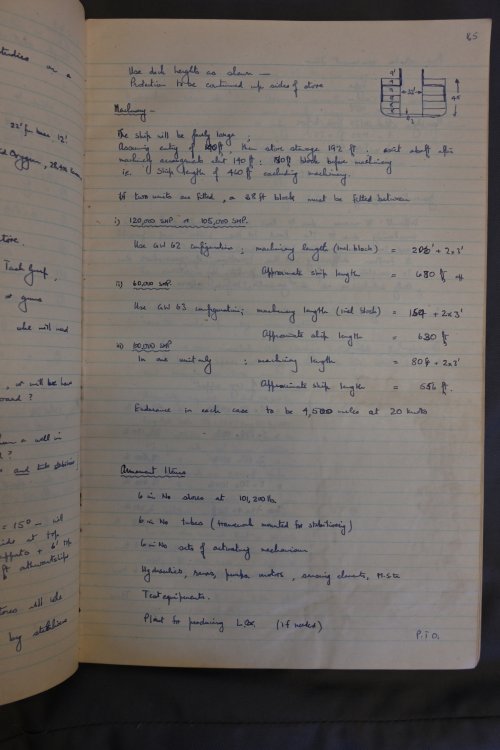 85
Use deck heights as shown —
Protection to be continued up sides of store
9'
22'
45'
Machinery —
The ship will be fairly large;
Assuming entry of ft, then store stowage 192 ft: abaft after
machinery arrangements shut 140 ft: ft block before machinery
i.e. Ship length of 460 ft excluding machinery.
If two units are fitted, a 38 ft block must be fitted between
i) 120,000 SHP or 105,000 SHP.
Use GW 62 configuration; machinery length (incl block) = + 2 x 3'
Approximate ship length = 680 ft
ii) 60,000 SHP.
Use GW 63 configuration; machinery length (incl block) = + 2 x 3'
Approximate ship length = 630 ft
iii) SHP
In one unit only ; machinery length = 80 + 2 x 3'
Approximate ship length = ft.
Endurance in each case to be 4,500 miles at 20 knots
Armament Items
6 in No stores at 101,200 lb.
6 in No tubes (trainwork mounted for stabilising)
6 in No sets of activating mechanism
Hydraulics, servos, pumps motors, sensing elements, M.S. etc
Test equipments.
Plant for producing L.Ox. (if needed)
P.T.O.
studies on a
22' for base 12'
Oxygen,
store.
Task Group,
or guns
she will need
, or will be have
board?
a well in
?
and tube stabilised
= 15° — will
side at top
+ 6' top
ft athwartships
stores will be
by stabilise